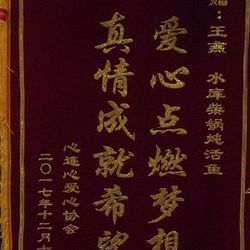 赠：王燕 水库柴锅炖活鱼
爱心点燃梦想
真情成就希望
心连心爱心协会
二〇一七年十二月